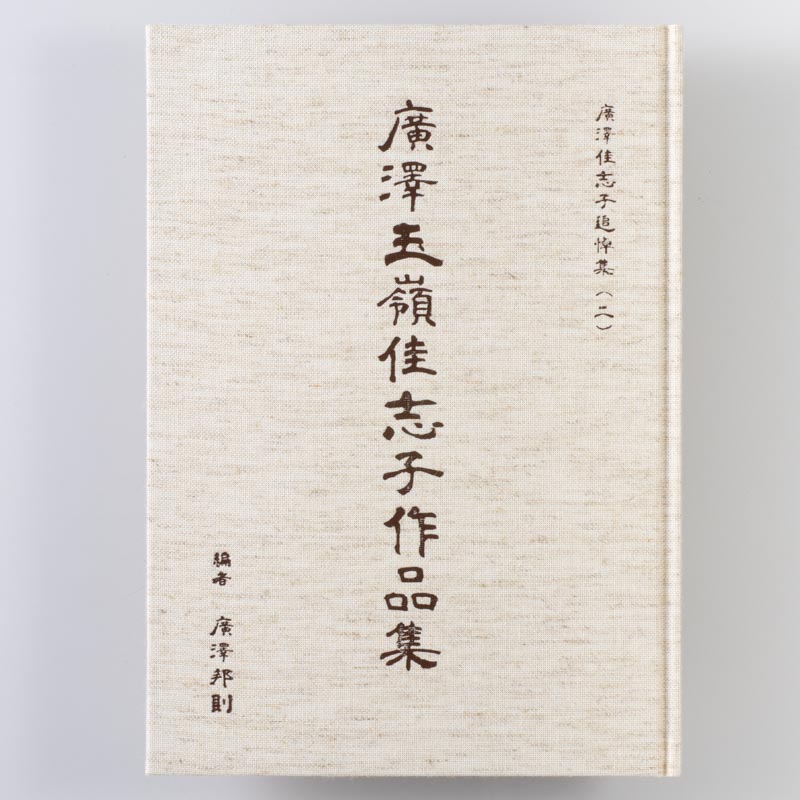 廣澤佳志子追悼集(二)
廣澤玉嶺佳志子作品集
編者 廣澤邦則